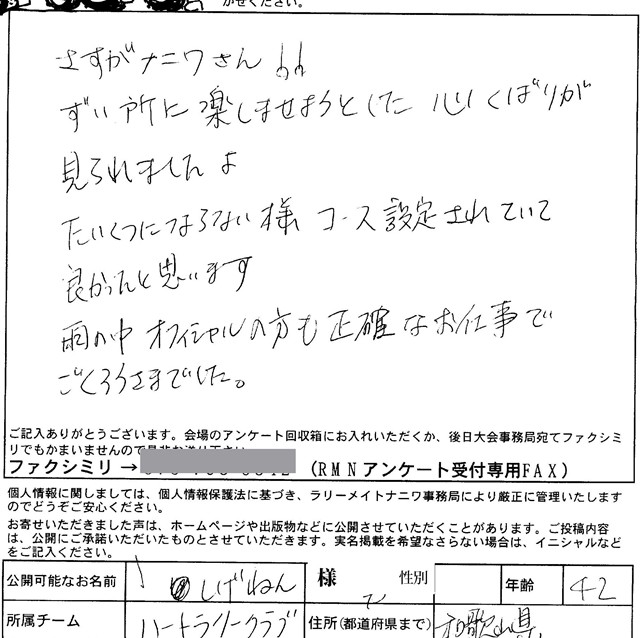 かせください。
さすがナニワさん!!
ずい所に楽しませようとした心くばりが
見られましたよ
たいくつにならない様 コース設定されていて
良かったと思います
雨の中 オフィシャルの方も正確なお仕事で
ごくろうさまでした。
ご記入ありがとうございます。会場のアンケート回収箱にお入れいただくか、後日大会事務局宛てファクシミ
リでもかまいませんので
ファクシミリ → (RMNアンケート受付専用FAX)
個人情報に関しましては、個人情報保護法に基づき、ラリーメイトナニワ事務局により厳正に管理いたします
のでどうぞご安心ください。
お寄せいただきました声は、ホームページや出版物などに公開させていただくことがあります。ご投稿内容
は、公開にご承諾いただいたものとさせていただきます。実名掲載を希望なさらない場合は、イニシャルなど
をご記入ください。
公開可能なお名前 しげねん 様 性別 年齢 42
所属チーム ハートラリークラブ 住所(都道府県まで) 和歌山県